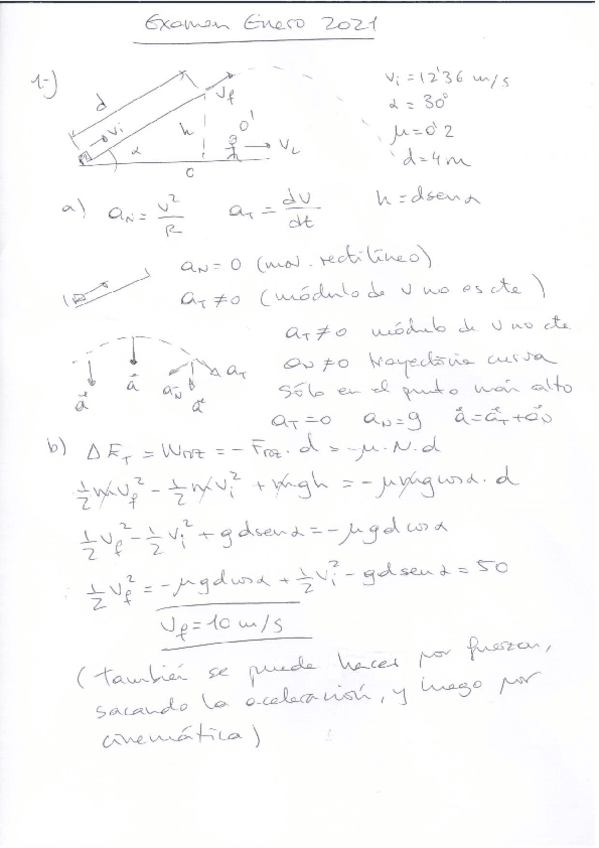 Examen Enero 2021
1-)
d
Vf
Vi
h
O'
VL
α
C
Vi = 12'36 m/s
α = 30°
μ = 0'2
d = 4m
h = d sen α
a) aN = v²/R aT = dv/dt
aN = 0 (mov. rectilíneo)
aT ≠ 0 (módulo de v no es cte)
aT ≠ 0 módulo de v no cte
aN ≠ 0 trayectoria curva
Sólo en el punto más alto
aT = 0 aN = g a⃗ = a⃗T + a⃗N
a⃗ a⃗ aN a⃗ aT
b) ΔET = WROZ = - FROZ · d = -μ · N · d
1/2 m Vf² - 1/2 m Vi² + mgh = - μ m g cos α · d
1/2 Vf² - 1/2 Vi² + g d sen α = - μ g d cos α
1/2 Vf² = - μ g d cos α + 1/2 Vi² - g d sen α = 50
Vf = 10 m/s
(también se puede hacer por fuerzas,
sacando la aceleración, y luego por
cinemática)